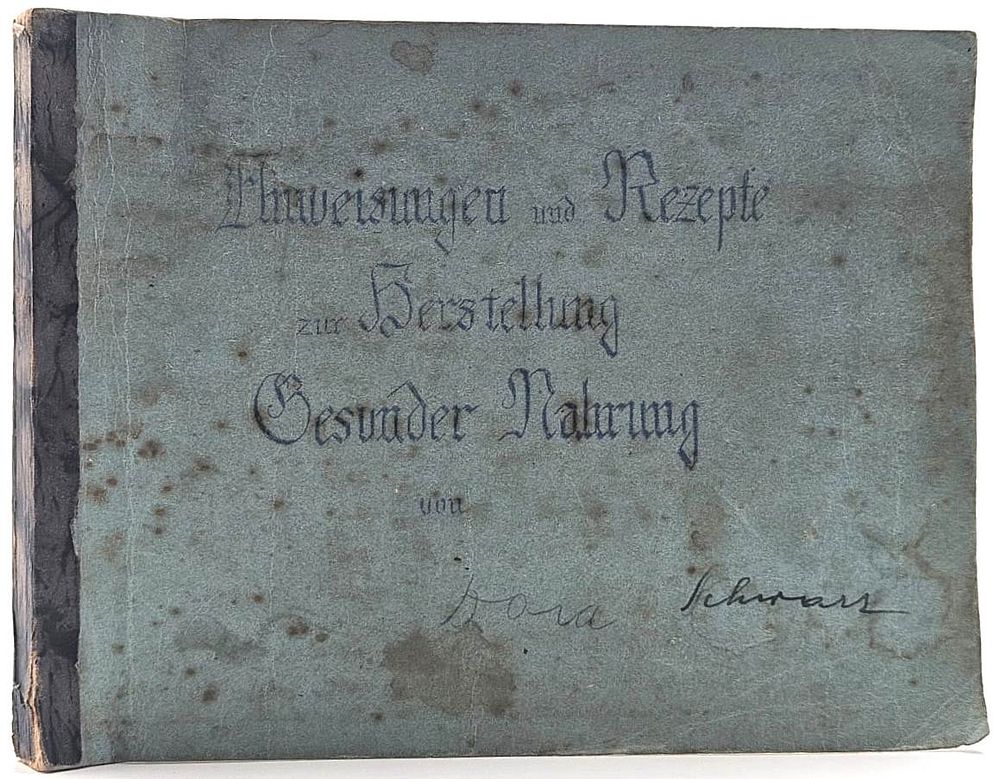 Anweisungen und Rezepte
zur Herstellung
Gesunder Nahrung
von
Dora Schwarz